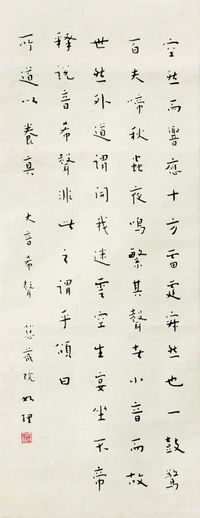 空然而響應十方雷霆寂然也一鼓驚
百夫啼秋蟲夜鳴繁其聲小音而故
世然外道謂問我迷雲空生宴坐不帝
釋說音希聲非此之謂乎頌曰
所道以養真 大音希聲 慈院如理